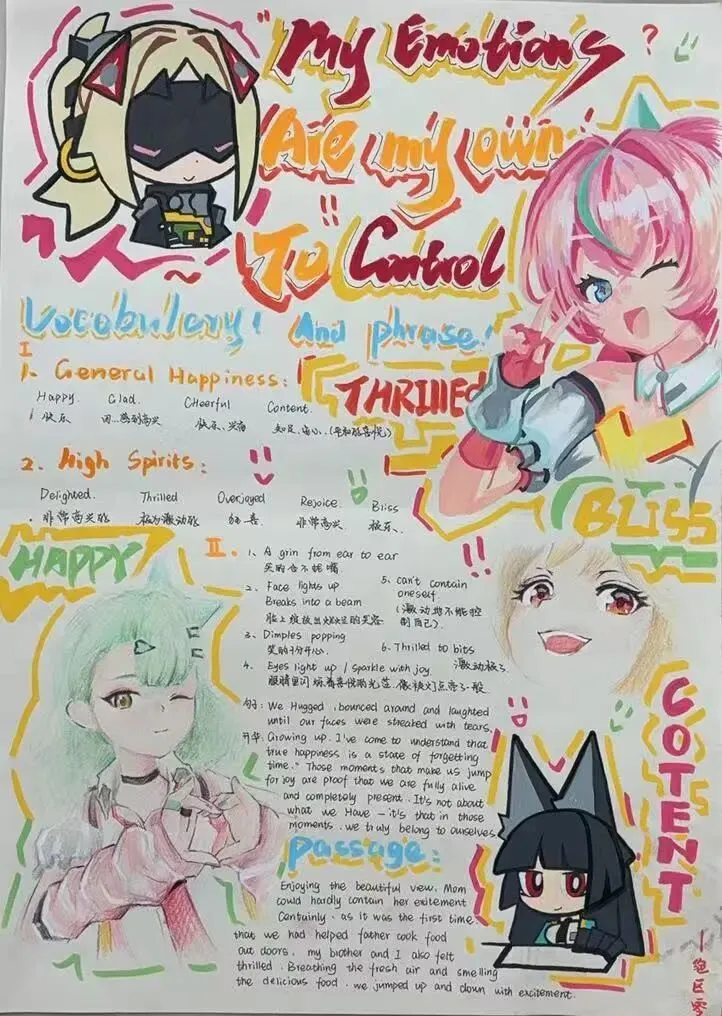 My Emotions ?
Are my own
To Control
Vocobulary! And phrase!
I
1. General Happiness:
Happy. Glad. CHeerful Content.
快乐 因...感到高兴 快乐、兴奋 知足、安心、(平和感喜悦)
THRIllED
2. High Spirits:
Delighted. Thrilled Overjoyed Rejoice. Bliss
非常高兴的 极为激动的 狂喜 非常高兴 极乐.
BLISS
HAPPY
II.
1、 A grin from ear to ear
笑的合不拢嘴
2. Face lights up
Breaks into a beam
脸上绽放出灿烂的笑容
3. Dimples popping
笑的十分开心.
4. Eyes light up / sparkle with joy
眼睛里闪烁着喜悦的光芒.像被灯点亮了一般
5. can't contain
oneself
(激动地不能控
制自己).
6. Thrilled to bits
激动极了
句子: We Hugged ,bounced around and laughted
until our faces were streaked with tears.
升华: Growing up. I've come to understand that
true happiness is a state of forgetting
time." Those moments that make us jump
for joy are proof that we are fully alive
and completely present. It's not about
what we Have — it's that in those
moments. we truly belong to ourselves.
COTENT
Passage:
Enjoying the beautiful view. Mom
could hardly contain her exitement
Cantainly. as it was the first time
that we had helped father cook food
out doors. my brother and I also felt
thrilled. Breathing the fresh air and smelling
the delicious food. we jumped up and down with excitement.
绝区零